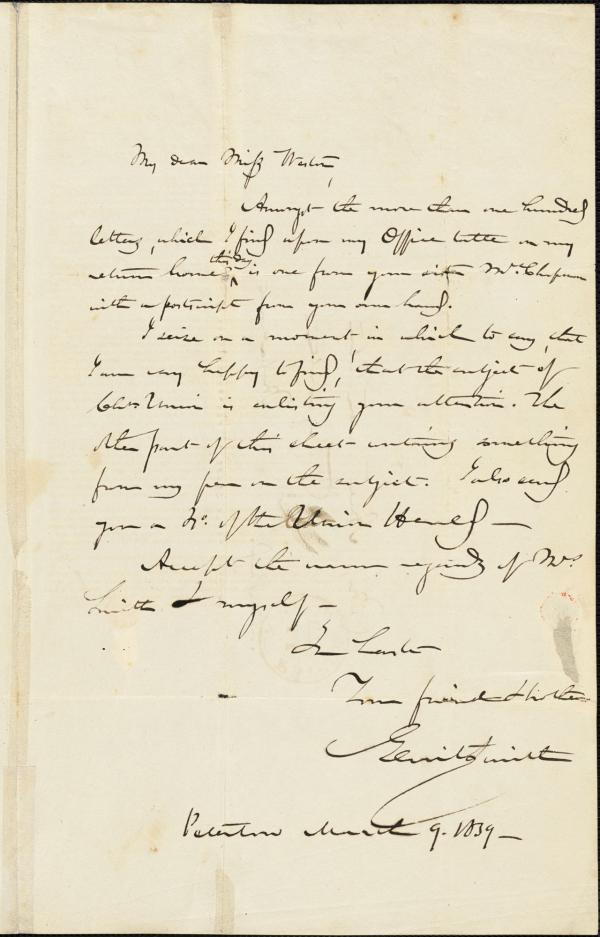 My dear Miss Weston,
Amongst the more than one hundred
letters, which I find upon my Office table on my
return home this day, is one from your sister Mrs. Chapman
with a postscript from your own hand.
I seize on a moment in which to say, that
I am very happy to find, that the subject of
Chn. Union is enlisting your attention. The
other part of this sheet contains something
from my pen on the subject. I also send
you a No. of the Union Herald —
Accept the warm regards of Mrs.
Smith & myself —
In haste
Your friend & brother
Gerrit Smith
Peterboro March 9. 1839 —